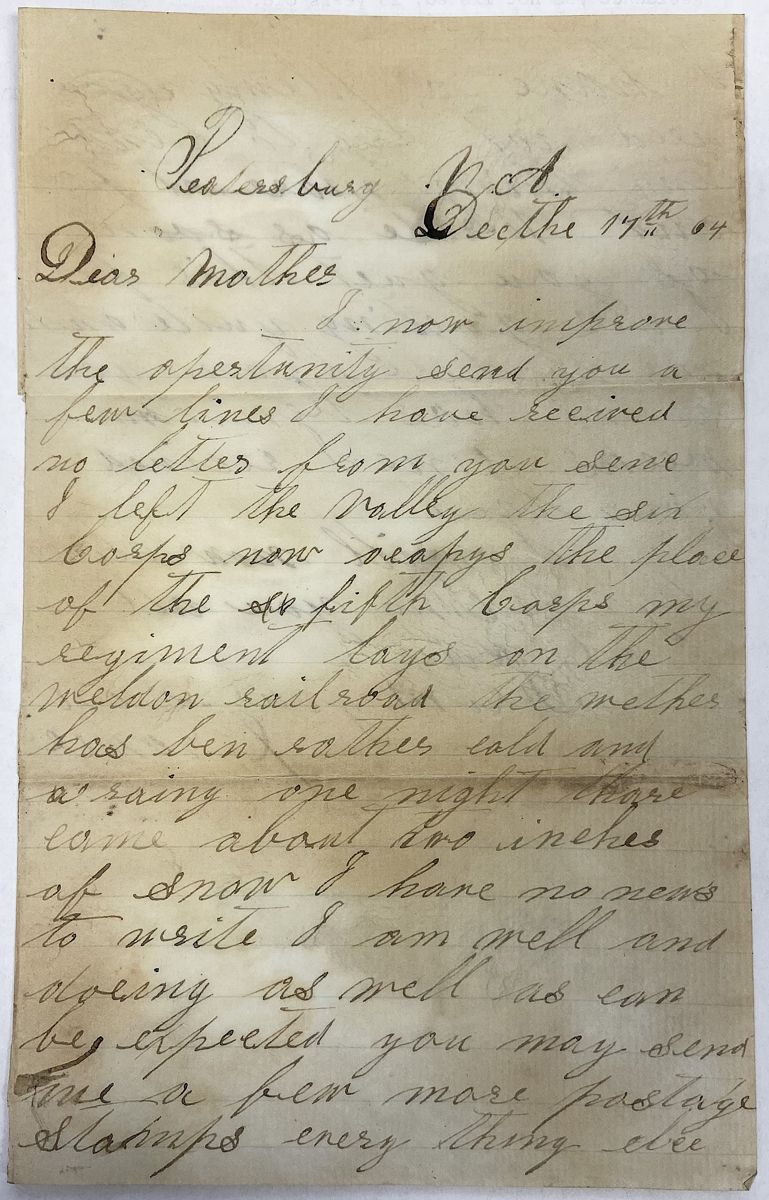 Peatersburg V A.
Decthe 17th 64
Dear Mother
I now improve
the opertunity send you a
few lines I have received
no letter from you sene
I left the valley the six
Corps now ocapys the place
of the fifth Corps my
regiment lays on the
weldon railroad the wether
has ben rather cold and
a raing one night thare
came about two inches
of snow I have no news
to write I am well and
doeing as well as can
be expected you may send
me a few more postage
stamps every thing else